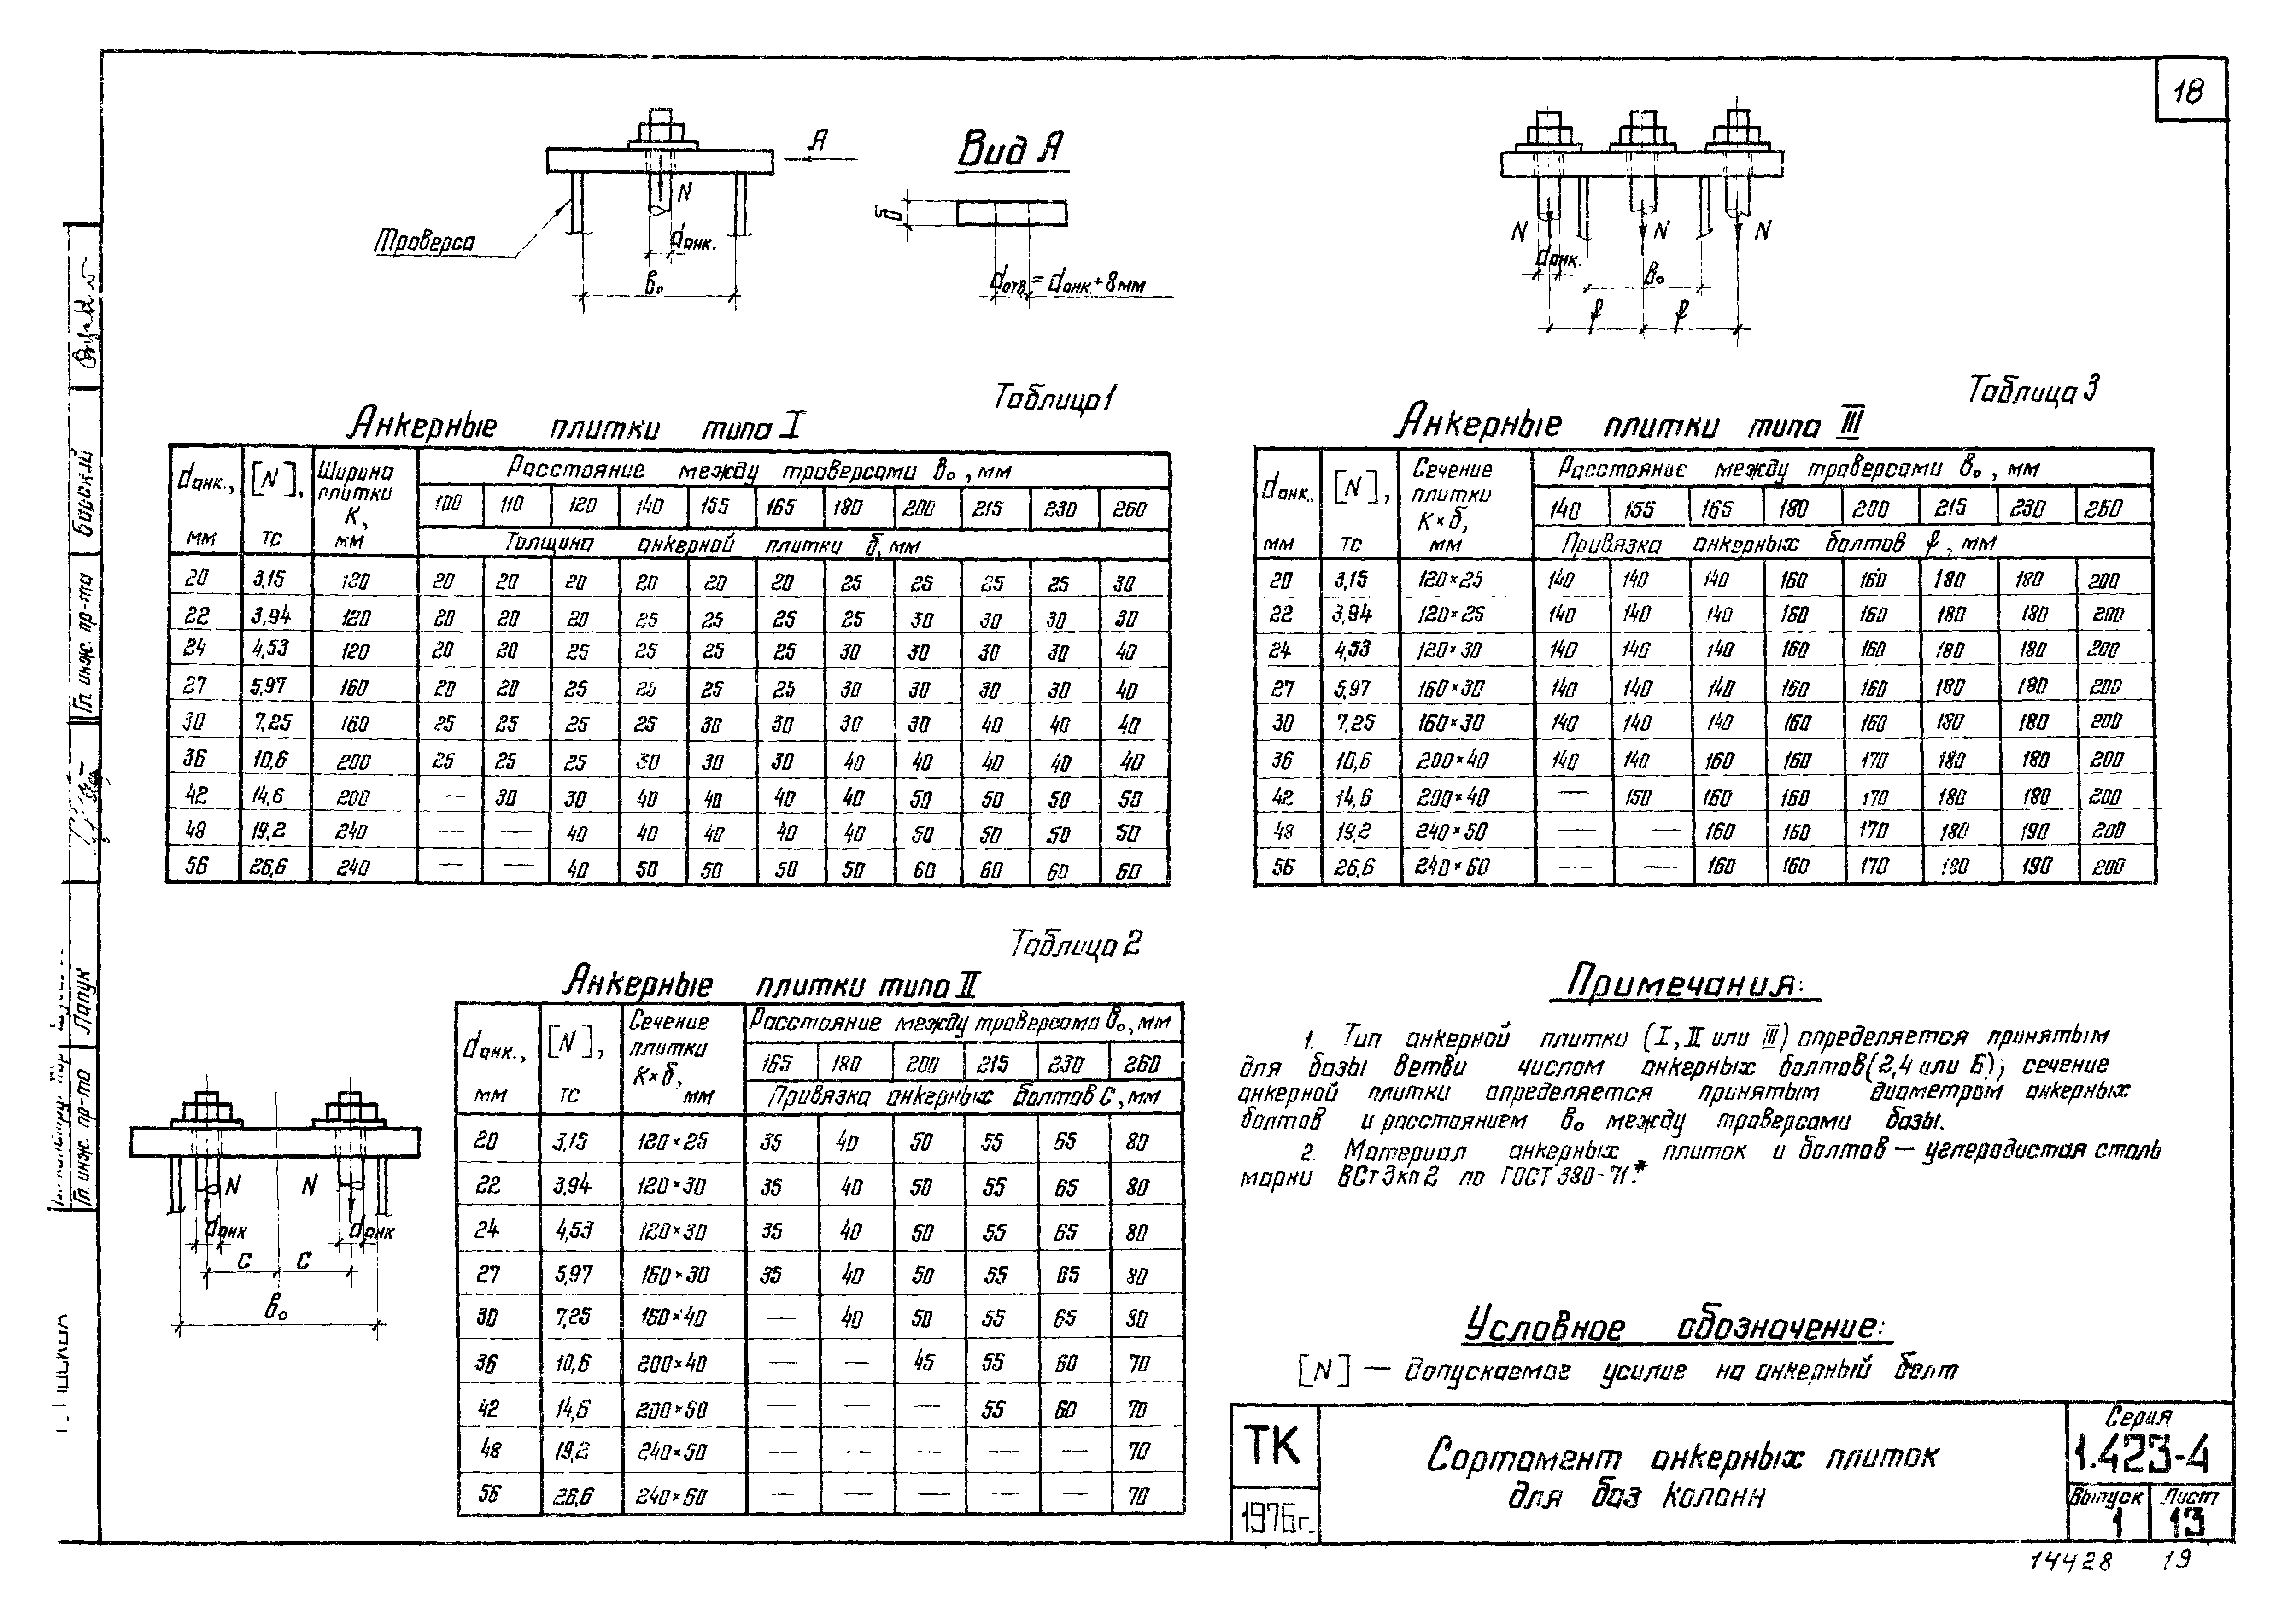 18
А
Вид А
N
Траверса
dанк.
в₀
δ
dотв. = dанк. + 8 мм
N
N
N
dанк.
в₀
f
f
Таблица 1
Анкерные плитки типа I
dанк., мм | [N], тс | Ширина плитки К, мм | Расстояние между траверсами в₀, мм
100 | 110 | 120 | 140 | 155 | 165 | 180 | 200 | 215 | 230 | 260
Толщина анкерной плитки δ, мм
20 | 3,15 | 120 | 20 | 20 | 20 | 20 | 20 | 20 | 25 | 25 | 25 | 25 | 30
22 | 3,94 | 120 | 20 | 20 | 20 | 25 | 25 | 25 | 25 | 30 | 30 | 30 | 30
24 | 4,53 | 120 | 20 | 20 | 25 | 25 | 25 | 25 | 30 | 30 | 30 | 30 | 40
27 | 5,97 | 160 | 20 | 20 | 25 | 25 | 25 | 25 | 30 | 30 | 30 | 30 | 40
30 | 7,25 | 160 | 25 | 25 | 25 | 25 | 30 | 30 | 30 | 30 | 40 | 40 | 40
36 | 10,6 | 200 | 25 | 25 | 25 | 30 | 30 | 30 | 40 | 40 | 40 | 40 | 40
42 | 14,6 | 200 | — | 30 | 30 | 40 | 40 | 40 | 40 | 50 | 50 | 50 | 50
48 | 19,2 | 240 | — | — | 40 | 40 | 40 | 40 | 40 | 50 | 50 | 50 | 50
56 | 26,6 | 240 | — | — | 40 | 50 | 50 | 50 | 50 | 60 | 60 | 60 | 60
Таблица 3
Анкерные плитки типа III
dанк., мм | [N], тс | Сечение плитки К×δ, мм | Расстояние между траверсами в₀, мм
140 | 155 | 165 | 180 | 200 | 215 | 230 | 260
Привязка анкерных болтов f, мм
20 | 3,15 | 120×25 | 140 | 140 | 140 | 160 | 160 | 180 | 180 | 200
22 | 3,94 | 120×25 | 140 | 140 | 140 | 160 | 160 | 180 | 180 | 200
24 | 4,53 | 120×30 | 140 | 140 | 140 | 160 | 160 | 180 | 180 | 200
27 | 5,97 | 160×30 | 140 | 140 | 140 | 160 | 160 | 180 | 180 | 200
30 | 7,25 | 160×30 | 140 | 140 | 140 | 160 | 160 | 180 | 180 | 200
36 | 10,6 | 200×40 | 140 | 140 | 160 | 160 | 170 | 180 | 180 | 200
42 | 14,6 | 200×40 | — | 150 | 160 | 160 | 170 | 180 | 180 | 200
48 | 19,2 | 240×50 | — | — | 160 | 160 | 170 | 180 | 190 | 200
56 | 26,6 | 240×60 | — | — | 160 | 160 | 170 | 180 | 190 | 200
Таблица 2
Анкерные плитки типа II
dанк., мм | [N], тс | Сечение плитки К×δ, мм | Расстояние между траверсами в₀, мм
165 | 180 | 200 | 215 | 230 | 260
Привязка анкерных болтов С, мм
20 | 3,15 | 120×25 | 35 | 40 | 50 | 55 | 65 | 80
22 | 3,94 | 120×30 | 35 | 40 | 50 | 55 | 65 | 80
24 | 4,53 | 120×30 | 35 | 40 | 50 | 55 | 65 | 80
27 | 5,97 | 160×30 | 35 | 40 | 50 | 55 | 65 | 80
30 | 7,25 | 160×40 | — | 40 | 50 | 55 | 65 | 80
36 | 10,6 | 200×40 | — | — | 45 | 55 | 60 | 70
42 | 14,6 | 200×50 | — | — | — | 55 | 60 | 70
48 | 19,2 | 240×50 | — | — | — | — | — | 70
56 | 26,6 | 240×60 | — | — | — | — | — | 70
N
N
dанк
dанк
С
С
в₀
Примечания:
1. Тип анкерной плитки (I, II или III) определяется принятым
для базы ветви числом анкерных болтов (2,4 или 6); сечение
анкерной плитки определяется принятым диаметром анкерных
болтов и расстоянием в₀ между траверсами базы.
2. Материал анкерных плиток и болтов — углеродистая сталь
марки ВСт3кп2 по ГОСТ 380-71.*
Условное обозначение:
[N] — допускаемое усилие на анкерный болт
ТК
1976г.
Сортамент анкерных плиток
для баз колонн
Серия
1.423-4
Выпуск
1
Лист
13
14428 19
Гл. инж. пр-та
Барский
Гл. инж. пр-та
Лапук